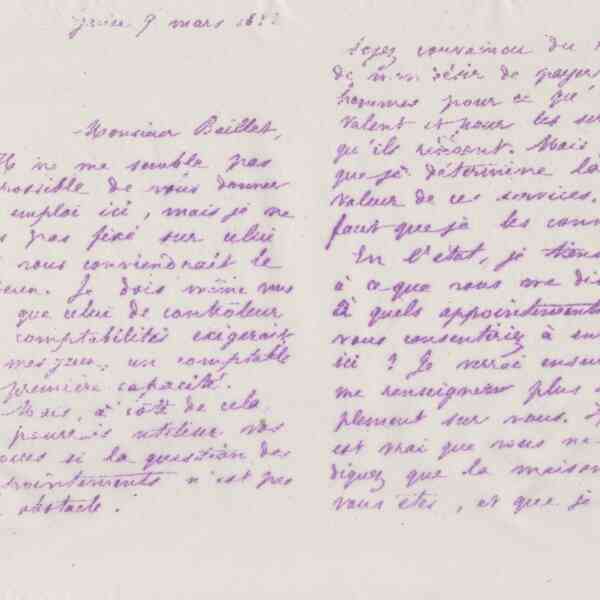 9 mars
Monsieur Baillet,
Il ne me semble pas
possible de vous donner
emploi ici, mais je ne
s pas fixé sur celui
i vous conviendrait le
ieux. Je dois même vous
que celui de contrôleur
comptabilités exigerait
mes yeux, un comptable
première capacité.
Mais, à côté de cela
pourrais utiliser vos
si la question des
pointements n'est pas
obstacle.
Soyez convaincu du
de mon désir de payer
hommes pour ce qu'
valent et pour les ser
qu'ils rendent. Mais
que je détermine la
valeur de ces services,
faut que je les conn
En l'état, je tiens
à ce que vous me di
à quels appointements
vous consentiriez à en
ici ? Je verrai ensui
me renseigner plus
plement sur vous. I
est vrai que vous ne
diquez que la maison
vous êtes, et que je